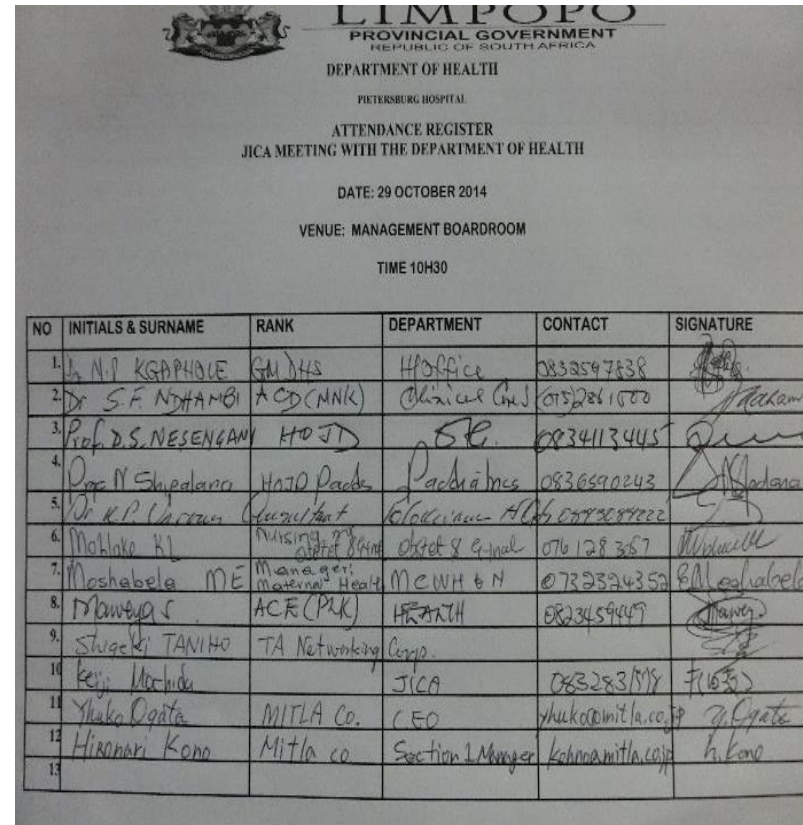 LIMPOPO
PROVINCIAL GOVERNMENT
REPUBLIC OF SOUTH AFRICA
DEPARTMENT OF HEALTH
PIETERSBURG HOSPITAL
ATTENDANCE REGISTER
JICA MEETING WITH THE DEPARTMENT OF HEALTH
DATE: 29 OCTOBER 2014
VENUE: MANAGEMENT BOARDROOM
TIME 10H30
NO INITIALS & SURNAME RANK DEPARTMENT CONTACT SIGNATURE
1. N.P KGAPHOLE GM DHS H/Office 0832597838
2. Dr S.F. NDHAMBI ACD (MNK) Clinical (015)2861000
3. Prof. D.S. NESENGANI HOJD 0834113445
4. Prof N Shipalana HOJD Paeds Paediatrics 0836590243
5. Dr K.P. Consultant
6. Mohloke KL Nursing obstet & Gynal 076 128 3057
7. Moshabela ME Manager: Maternal Health MCWH & N 0732324352
8. Maweya S ACE (PZK) HEALTH 0823459449
9. Shigeki TANIHO TA Networking Corp.
10 Keiji Mochida JICA
11 Yhuko Ogata MITLA Co. CEO yhuko@mitla.co.jp Y. Ogata
12 Hironari Kono Mitla co Section 1 Manager kohno@mitla.co.jp h. Kono
13